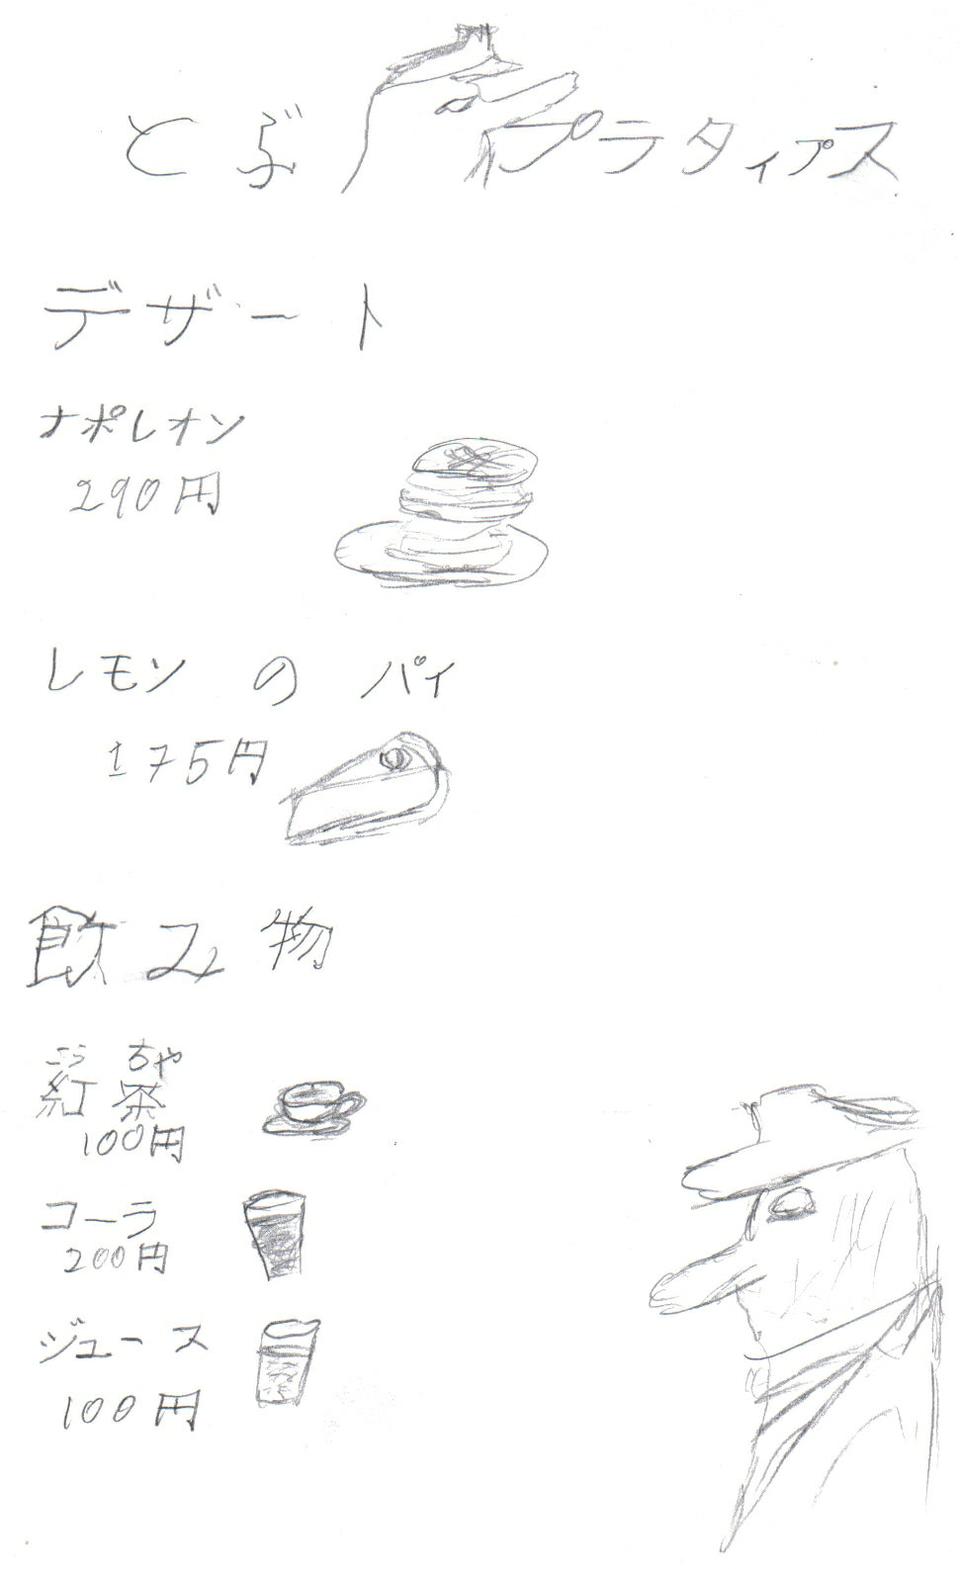 とぶ プラタイプス
デザート
ナポレオン
290円
レモン の パイ
175円
飲み物
こう ちゃ
紅茶
100円
コーラ
200円
ジュース
100円